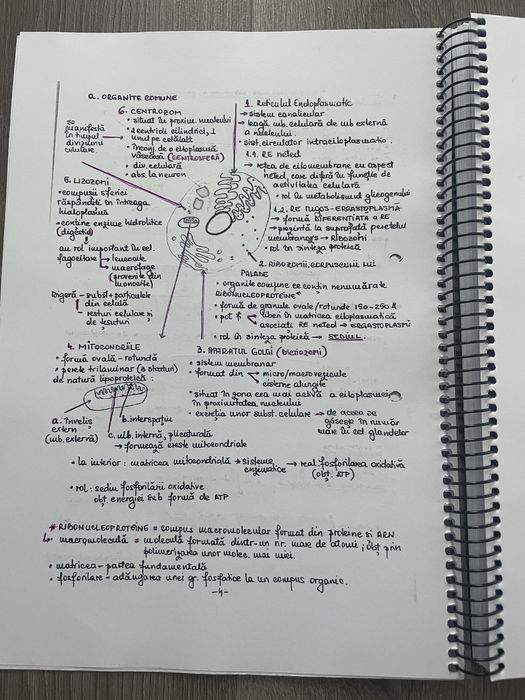 a. ORGANITE COMUNE
6. CENTROZOM
• situat în proxim. nucleului
• 2 centrioli cilindrici, ⊥
unul pe celălalt
• înconj. de o citoplasmă
vâscoasă (CENTROSFERĂ)
• div. celulară
• abs. la neuron
se
manifestă
în timpul
diviziunii
celulare
1. Reticulul Endoplasmatic
→ sistem canalicular
→ leagă mb. celulară de mb. externă
a nucleului.
• sist. circulator intracitoplasmatic.
1.1. RE neted
→ rețea de citomembrane cu aspect
neted, care diferă în funcție de
activitatea celulară
• rol în metabolismul glicogenului
1.2. RE RUGOS - ERGASTOPLASMA
→ formă DIFERENȚIATĂ a RE
→ prezintă la suprafața peretelui
membranos → RIBOZOMI
• rol în sinteza proteică
5. LIZOZOMI
• corpusculi sferici
răspândiți în întreaga
hialoplasmă
• conține enzime hidrolitice
(digestia)
au rol important în cel.
fagocitare
leucocite
macrofage
(provenite din
monocite)
Digeră - subst + particulele
din celulă
resturi celulare și
de țesuturi
2. RIBOZOMII, CORPUSCULII LUI
PALADE
• organite corpusc. ce conțin nenumărate
RIBONUCLEOPROTEINE*
• formă de granule ovale/rotunde 150-250 Å
• pot fi
liberi în matricea citoplasmatică
asociați RE neted → ERGASTOPLASMĂ
• rol în sinteza proteică → SEDIUL.
4. MITOCONDRIILE
• formă ovală - rotundă
• perete trilaminar (3 straturi)
de natură lipoproteică:
a. înveliș
extern
(mb. externă)
b. interspațiu
c. mb. internă, plicaturată
→ formează creste mitocondriale
3. APARATUL GOLGI (Dictiozomi)
• sistem membranar
• format din
micro/macrovezicule
cisterne alungite
• situat în zona cea mai activă a citoplasmei
în proximitatea nucleului
• excreția unor subst. celulare → de aceea se
găsește în număr
mare în cel. glandelor
• la interior: matricea mitocondrială → sisteme
enzimatice → real. fosforilarea oxidativă
(obț. ATP)
• rol: sediu fosforilării oxidative
obț. energiei sub formă de ATP
* RIBONUCLEOPROTEINE = compus macromolecular format din proteine și ARN
↳ • macromoleculă = moleculă formată dintr-un nr. mare de atomi, obț. prin
polimerizarea unor molec. mai mici.
• matricea - partea fundamentală
• fosforilare - adăugarea unei gr. fosfatice la un compus organic.
-4-